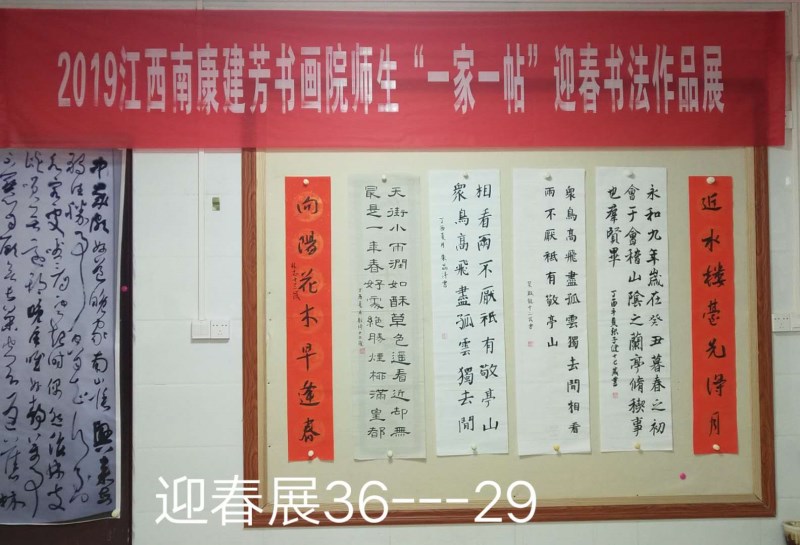 2019江西南康建芳书画院师生“一家一帖”迎春书法作品展
近水樓臺先得月
永和九年歲在癸丑暮春之初
會于會稽山陰之蘭亭脩禊事
也羣賢畢
衆鳥高飛盡孤雲獨去閒相看
兩不厭祗有敬亭山
相看兩不厭祗有敬亭山
衆鳥高飛盡孤雲獨去閒
天街小雨潤如酥草色遥看近却無
最是一年春好處絶勝煙柳滿皇都
向陽花木早逢春
中歲頗好道晚家南山陲興來每
迎春展36---29